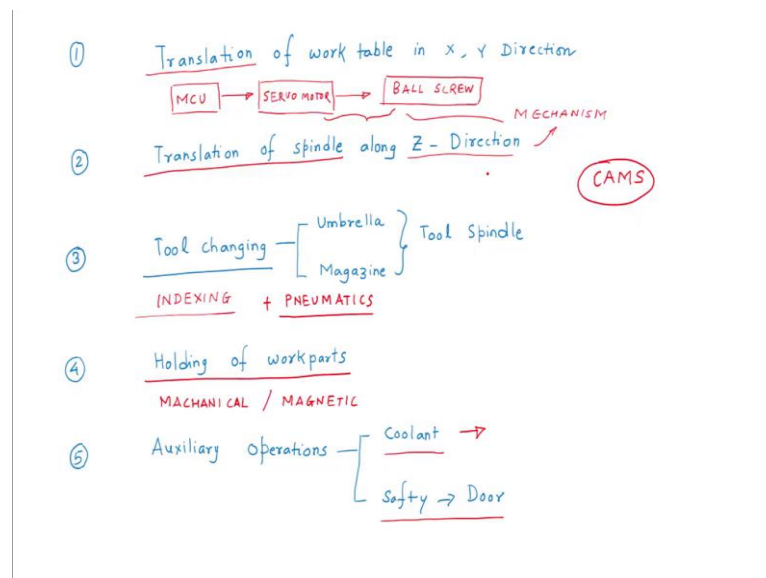 ① Translation of work table in X, Y Direction
MCU → SERVO MOTOR → BALL SCREW
MECHANISM
② Translation of spindle along Z - Direction
CAMS
③ Tool changing
Umbrella
Magazine
Tool Spindle
INDEXING + PNEUMATICS
④ Holding of workparts
MACHANICAL / MAGNETIC
⑤ Auxiliary Operations
Coolant →
Safty → Door